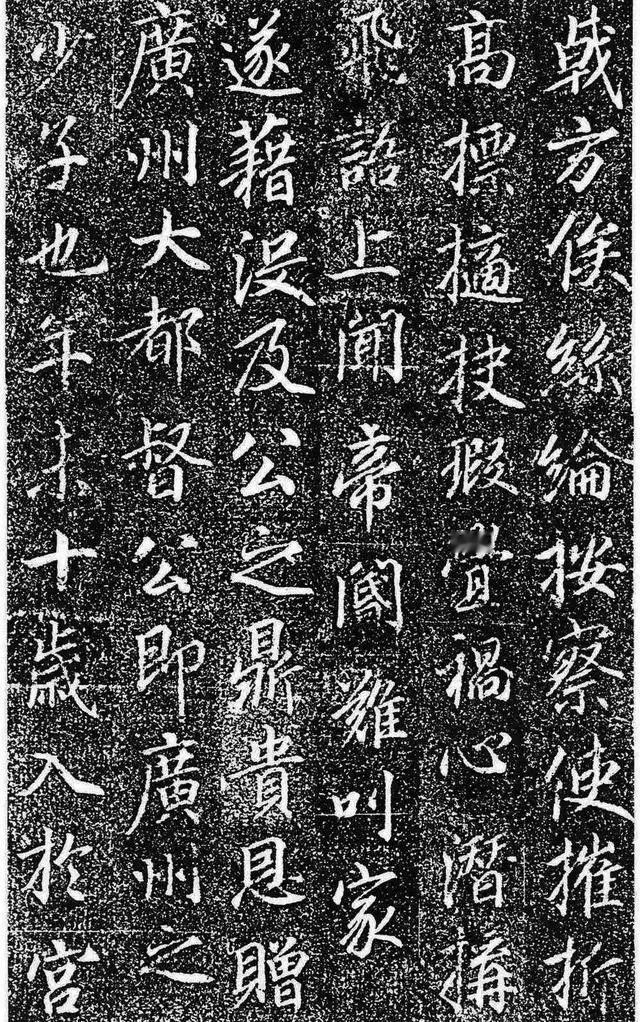 戟方俟絲綸按察使摧折
高標擿抉瑕舋禍心潛構
飛語上聞帝閽難叫家
遂藉没及公之鼎貴恩贈
廣州大都督公即廣州之
少子也年未十歲入於宮